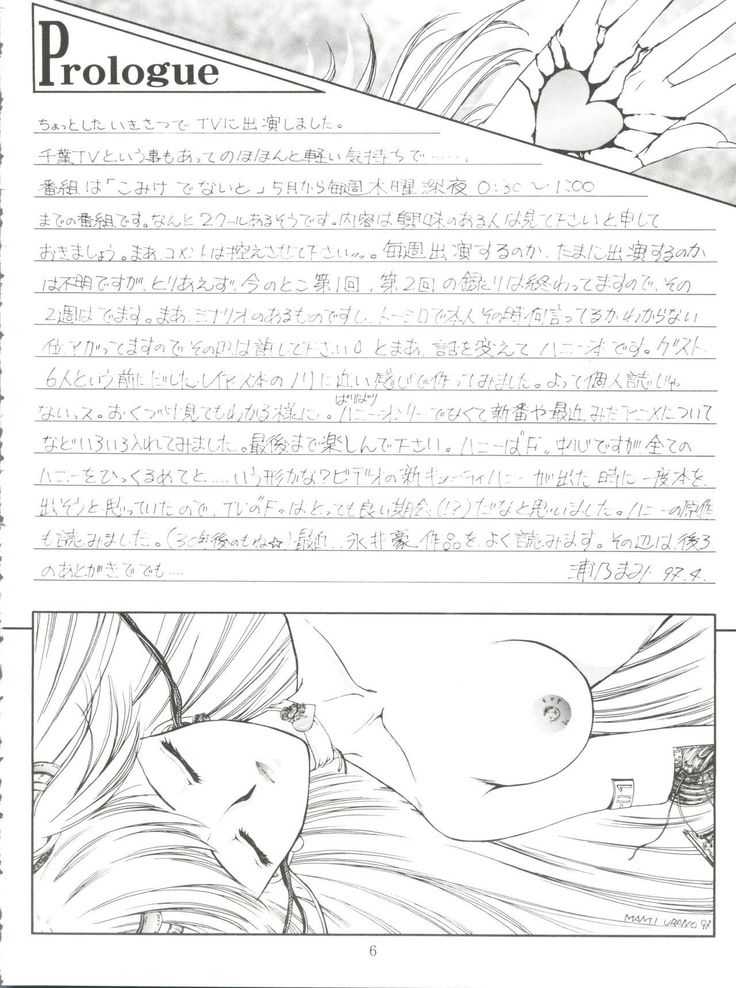 Prologue
ちょっとしたいきさつでTVに出演しました。
千葉TVという事もあってのほほんと軽い気持ちで……。
番組は「こみけでないと」5月から毎週木曜深夜0:30〜1:00
までの番組です。なんと2クールあるそうです。内容は興味のある人は見て下さいと申して
おきましょう。まあ、コメントは控えさせて下さい。毎週出演するのか、たまに出演するのか
は不明ですが、とりあえず、今のとこ第1回、第2回の録りは終わってますので、その
2週はでます。まあ、シナリオのあるものですし、トーシロで本人その時何言ってるかわからない
位アガってますのでその辺は許して下さい。とまあ、話を変えてハニー本です。ゲスト
6人という前にだしたレイアース本のノリに近い感じで作ってみました。よって個人誌じゃ
ないっス。おくづけ見てもわかる様に。ハニーオンリーでなくて新番や最近みたアニメについて
などいろいろ入れてみました。最後まで楽しんで下さい。ハニーは"F"中心ですが全ての
ハニーをひっくるめてと……いう形かな?ビデオの新キューティハニーが出た時に一度本を
出そうと思っていたので、TVの"F"はとっても良い機会(!?)だなと思いました。ハニーの原作
も読みました。(30年後のもね☆)最近、永井豪作品をよく読みます。その辺は後ろ
のあとがきででも…
浦乃まみ 97.4.
MAMI URANO 97
6